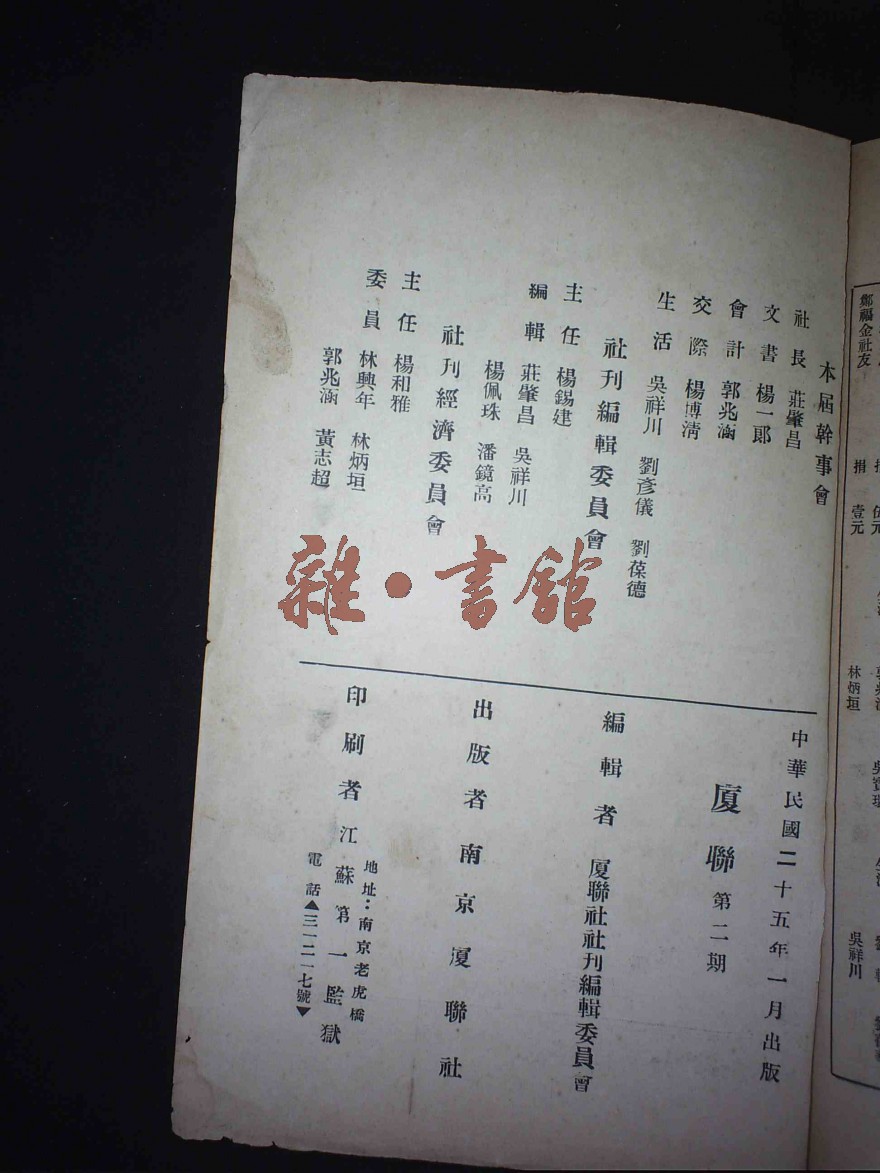 本屆幹事會
社長 莊肇昌
文書 楊一郞
會計 郭兆涵
交際 楊博清
生活 吳祥川 劉彥儀 劉葆德
社刊編輯委員會
主任 楊錫建
編輯 莊肇昌 吳祥川
楊佩珠 潘鏡高
社刊經濟委員會
主任 楊和雅
委員 林興年 林炳垣
郭兆涵 黃志超
雜·書館
中華民國二十五年一月出版
廈聯 第二期
編輯者 厦聯社社刊編輯委員會
出版者 南京厦聯社
印刷者 江蘇第一監獄
地址：南京老虎橋
電話▲三一二一七號▼
鄭福金社友
捐 壹元
伍元
林炳垣
吳祥川